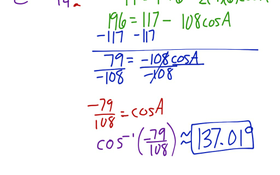 196 = 117 - 108cosA
-117 -117
79/-108 = -108cosA/-108
-79/108 = cosA
cos⁻¹(-79/108) ≈ 137.01°